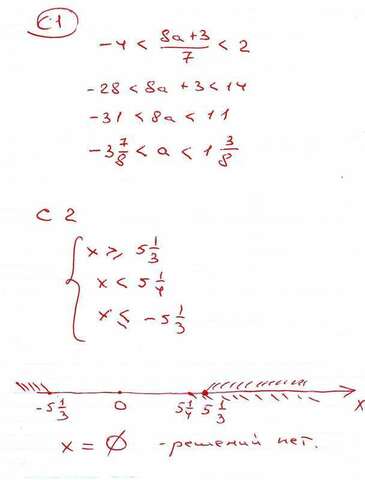 C1
-4 < (8a+3)/7 < 2
-28 < 8a + 3 < 14
-31 < 8a < 11
-3 7/8 < a < 1 3/8
C 2
x ≥ 5 1/3
x < 5 1/4
x ≤ -5 1/3
-5 1/3 0 5 1/4 5 1/3 x
x = ∅ - решений нет.